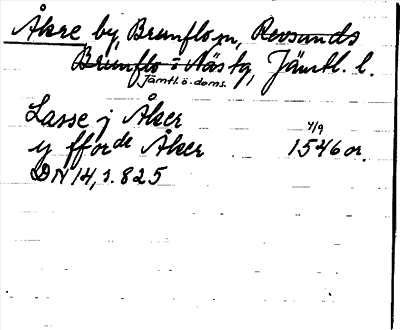 Åkre by, Brunflo sn, Revsunds
Brunflo o Näs tg, Jämtl. l.
Jämtl. ö. doms.
Lasse j Åker
4/9
y fforde Åker 1546 or.
DN 14, s. 825